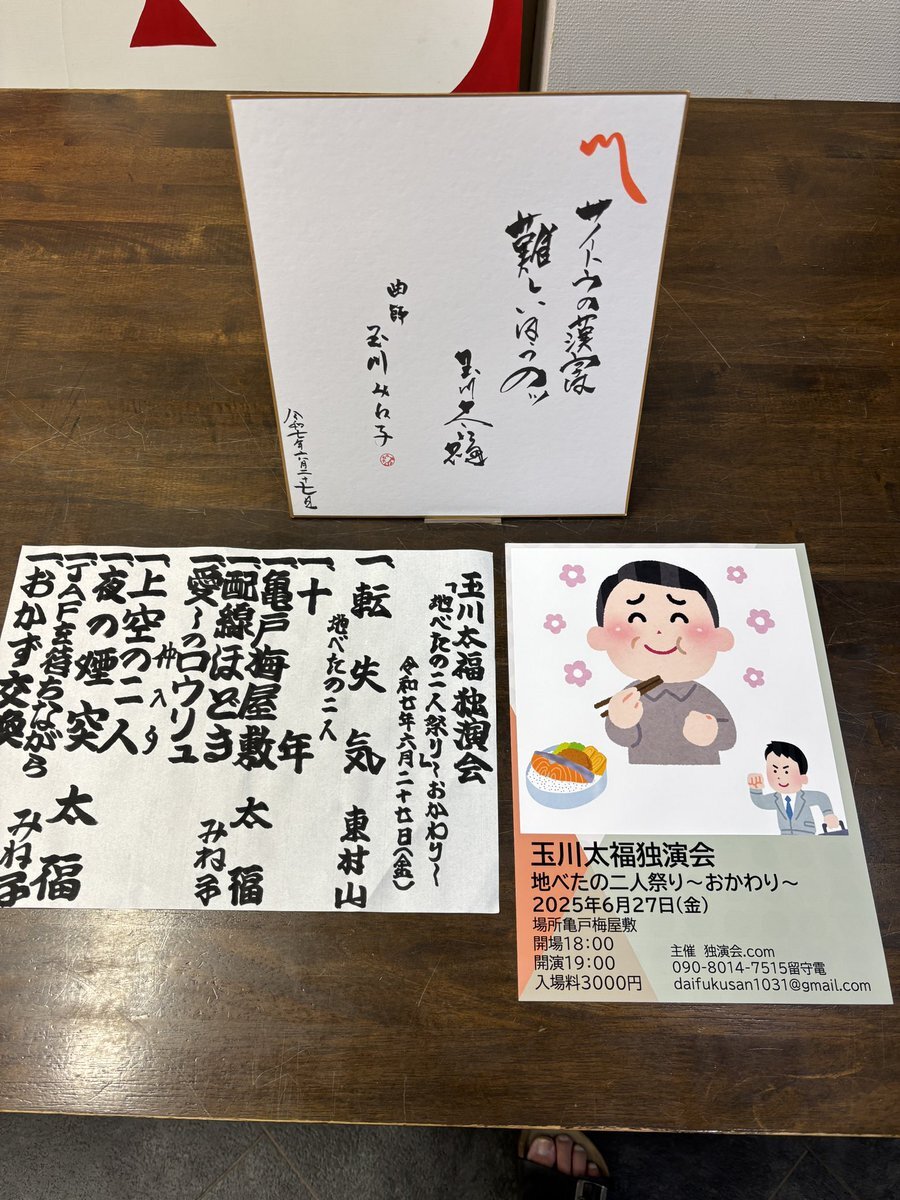 サイトウの漢字
難しいほうのッ
玉川太福
曲師
玉川みね子
令和七年六月二十七日
玉川太福独演会
「地べたの二人祭り」~おかわり~
令和七年六月二十七日(金)
一、転失気 東村山
地べたの二人
一、十年
一、亀戸梅屋敷
一、配線ほどき 太福
一、愛しのロウリュ みね子
仲入り
一、上空の二人
一、夜の煙突
一、JAFを待ちながら 太福
一、おかず交換 みね子
玉川太福独演会
地べたの二人祭り~おかわり~
2025年6月27日(金)
場所亀戸梅屋敷
開場18:00
開演19:00
入場料3000円
主催 独演会.com
090-8014-7515留守電
daifukusan1031@gmail.com